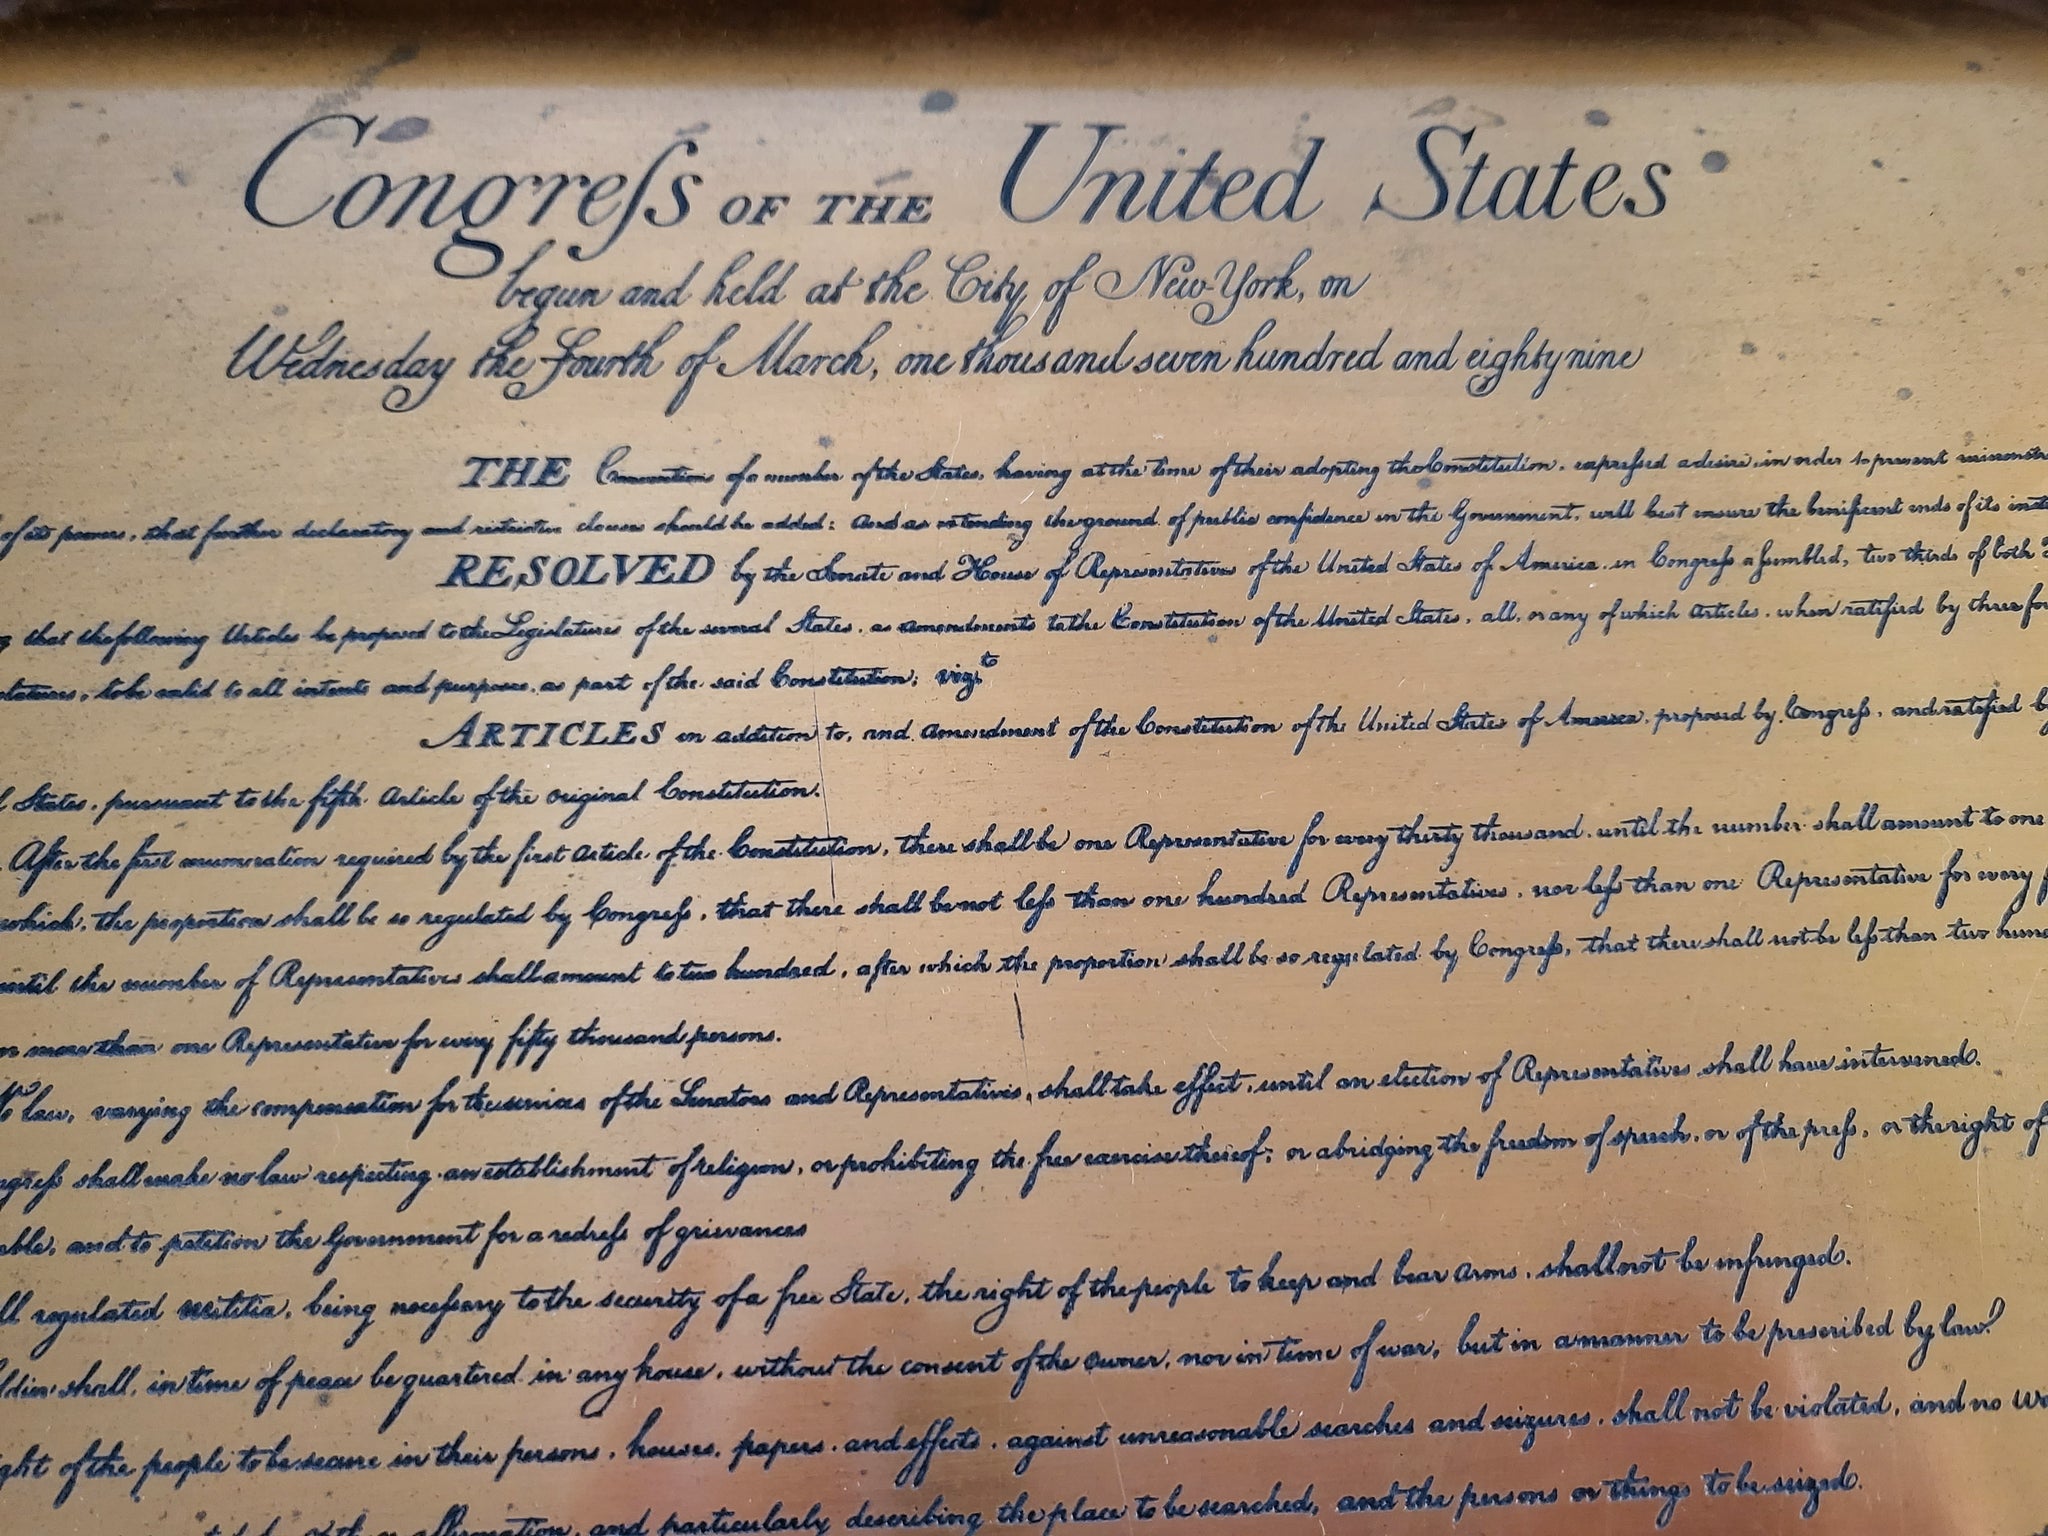 Congreſs OF THE United States
begun and held at the City of New-York, on
Wednesday the fourth of March, one thousand seven hundred and eighty nine
THE Conventions of a number of the States, having at the time of their adopting the Constitution, expreſsed a desire, in order to prevent misconstr
of its powers, that further declaratory and restrictive clauses should be added: And as extending the ground of public confidence in the Government, will best insure the benificent ends of its inst
RESOLVED by the Senate and House of Representatives of the United States of America, in Congreſs aſsembled, two thirds of both
that the following Articles be proposed to the Legislatures of the several States, as Amendments to the Constitution of the United States, all, or any of which Articles, when ratified by three fo
slatures, to be valid to all intents and purposes, as part of the said Constitution; vizt.
ARTICLES in addition to, and Amendment of the Constitution of the United States of America, proposed by Congreſs, and ratified b
l States, pursuant to the fifth Article of the Original Constitution.
After the first enumeration required by the first Article of the Constitution, there shall be one Representative for every thirty thousand, until the number shall amount to one
which, the proportion shall be so regulated by Congreſs, that there shall be not leſs than one hundred Representatives, nor leſs than one Representative for every f
until the number of Representatives shall amount to two hundred, after which the proportion shall be so regulated by Congreſs, that there shall not be leſs than two hund
or more than one Representative for every fifty thousand persons.
No law, varying the compensation for the services of the Senators and Representatives, shall take effect, until an election of Representatives shall have intervened.
ngreſs shall make no law respecting an establishment of religion, or prohibiting the free exercise thereof; or abridging the freedom of speech, or of the preſs, or the right of
able, and to petition the Government for a redreſs of grievances
ll regulated militia, being neceſsary to the security of a free State, the right of the people to keep and bear arms, shall not be infringed.
ldier shall, in time of peace be quartered in any house, without the consent of the owner, nor in time of war, but in a manner to be prescribed by law.
ght of the people to be secure in their persons, houses, papers, and effects, against unreasonable searches and seizures, shall not be violated, and no Wa
affirmation, and particularly describing the place to be searched, and the persons or things to be seized.